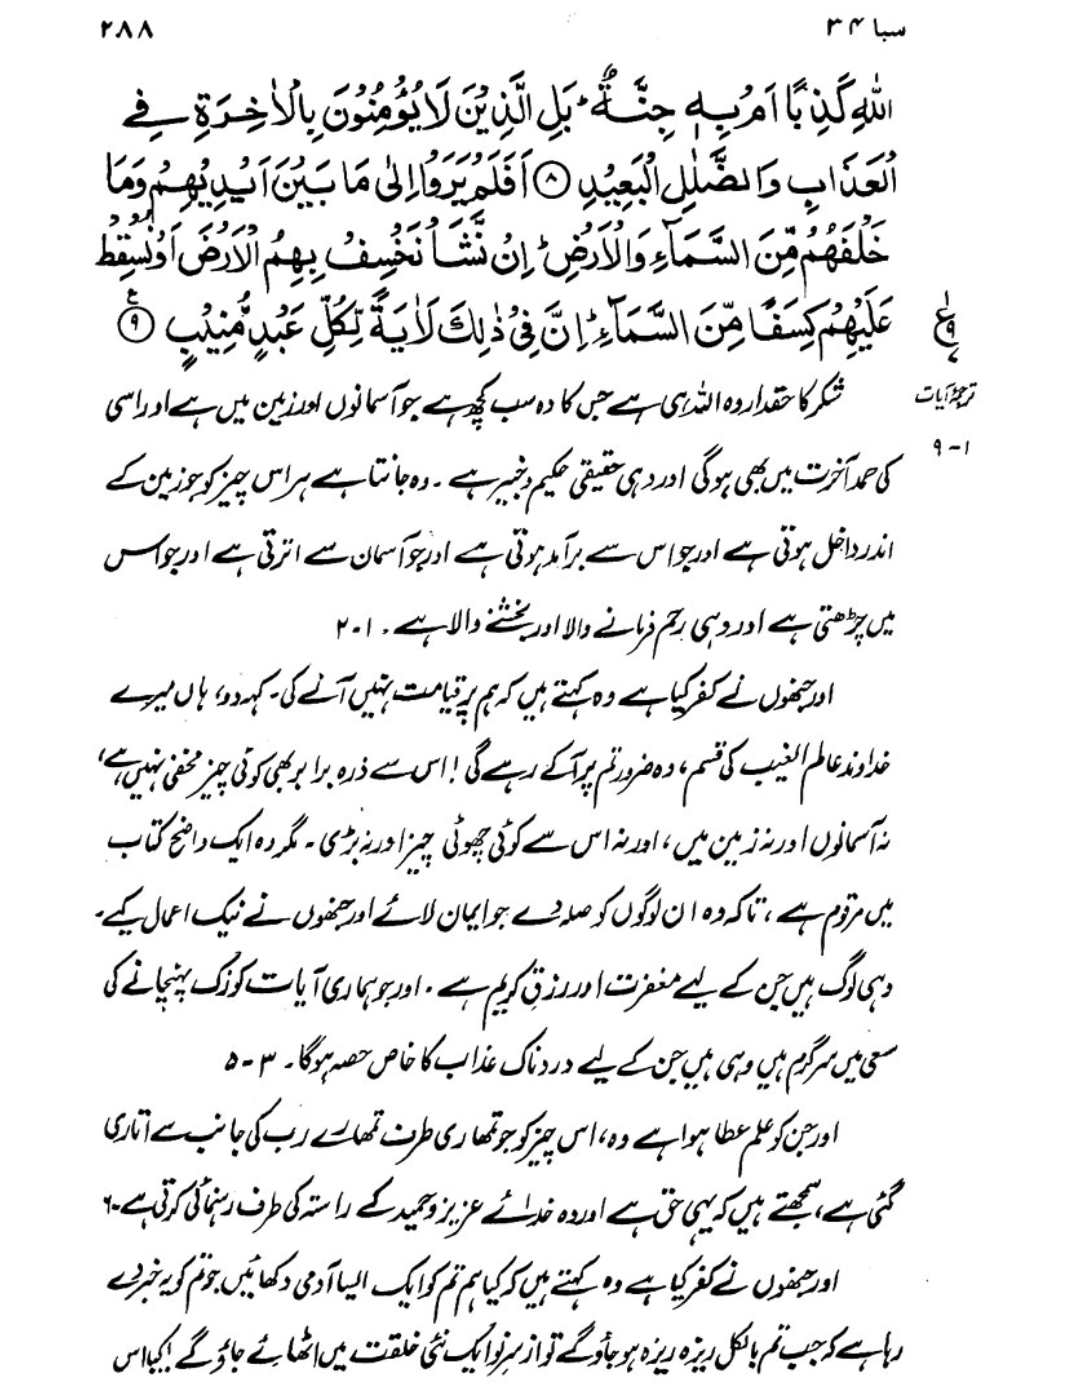 سبا ۳۴
۲۸۸
اللّٰهِ كَذِبًا اَمْ بِهٖ جِنَّةٌ ؕ بَلِ الَّذِيْنَ لَا يُؤْمِنُوْنَ بِالْاٰخِرَةِ فِى
الْعَذَابِ وَالضَّلٰلِ الْبَعِيْدِ ﴿۸﴾ اَفَلَمْ يَرَوْا اِلٰى مَا بَيْنَ اَيْدِيْهِمْ وَمَا
خَلْفَهُمْ مِّنَ السَّمَآءِ وَالْاَرْضِ ؕ اِنْ نَّشَاْ نَخْسِفْ بِهِمُ الْاَرْضَ اَوْ نُسْقِطْ
عَلَيْهِمْ كِسَفًا مِّنَ السَّمَآءِ ؕ اِنَّ فِىْ ذٰلِكَ لَاٰيَةً لِّكُلِّ عَبْدٍ مُّنِيْبٍ ﴿۹﴾
ع
۹
ترجمۂ آیات
۱-۹
شکر کا حقدار وہ اللہ ہی ہے جس کا وہ سب کچھ ہے جو آسمانوں اور زمین میں ہے اور اسی
کی حمد آخرت میں بھی ہو گی اور وہی حقیقی حکیم و خبیر ہے ۔ وہ جانتا ہے ہر اس چیز کو جو زمین کے
اندر داخل ہوتی ہے اور جو اس سے برآمد ہوتی ہے اور جو آسمان سے اترتی ہے اور جو اس
میں چڑھتی ہے اور وہی رحم فرمانے والا اور بخشنے والا ہے ۔ ۱-۲
اور جنھوں نے کفر کیا ہے وہ کہتے ہیں کہ ہم پر قیامت نہیں آنے کی۔ کہہ دو، ہاں میرے
خداوند عالم الغیب کی قسم، وہ ضرور تم پر آ کے رہے گی! اس سے ذرہ برابر بھی کوئی چیز مخفی نہیں ہے،
نہ آسمانوں اور نہ زمین میں، اور نہ اس سے کوئی چھوٹی چیز اور نہ بڑی ۔ مگر وہ ایک واضح کتاب
میں مرقوم ہے، تاکہ وہ ان لوگوں کو صلہ دے جو ایمان لائے اور جنھوں نے نیک اعمال کیے۔
وہی لوگ ہیں جن کے لیے مغفرت اور رزقِ کریم ہے ۔ اور جو ہماری آیات کو زک پہنچانے کی
سعی میں سرگرم ہیں وہی ہیں جن کے لیے دردناک عذاب کا خاص حصہ ہو گا۔ ۳-۵
اور جن کو علم عطا ہوا ہے وہ، اس چیز کو جو تمھاری طرف تمھارے رب کی جانب سے اتاری
گئی ہے، سمجھتے ہیں کہ یہی حق ہے اور وہ خدائے عزیز و حمید کے راستہ کی طرف رہنمائی کرتی ہے۔ ۶
اور جنھوں نے کفر کیا ہے وہ کہتے ہیں کہ کیا ہم تم کو ایک ایسا آدمی دکھائیں جو تم کو یہ خبر دے
رہا ہے کہ جب تم بالکل ریزہ ریزہ ہو جاؤ گے تو از سرِ نو ایک نئی خلقت میں اٹھائے جاؤ گے! کیا اس